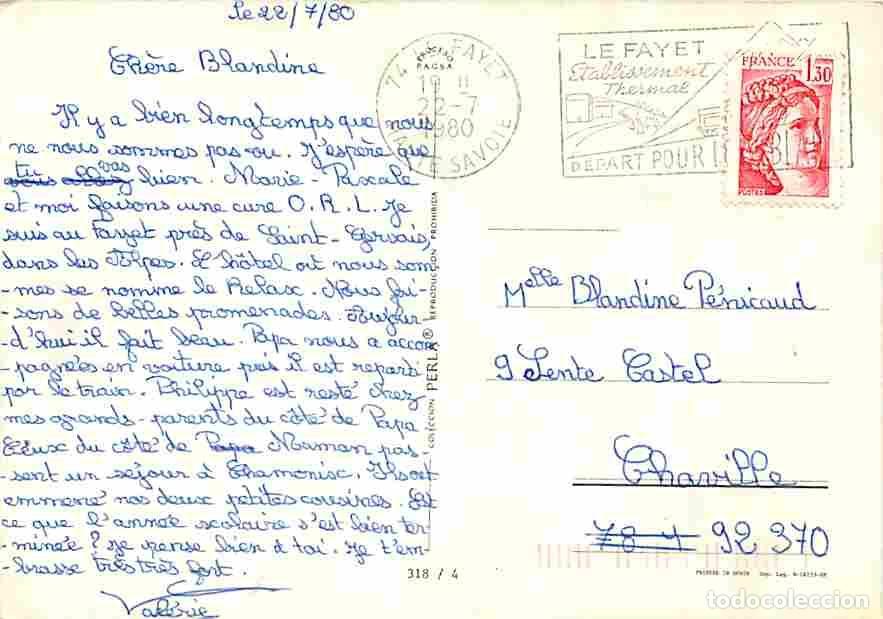 le 22/7/80
Chère Blandine
Il y a bien longtemps que nous
ne nous sommes pas vu. J'espère que
tu vas
vous allez bien. Marie-Pascale
et moi faisons une cure O.R.L. Je
suis au Fayet près de Saint-Gervais,
dans les Alpes. L'hôtel où nous som-
-mes se nomme le Relax. Nous fai-
-sons de belles promenades. Aujour-
-d'hui il fait beau. Papa nous a accom
-pagnées en voiture puis il est reparti
par le train. Philippe est resté chez
mes grands-parents du côté de Papa
Ceux du côté de Papa Maman pas-
-sent un séjour à Chamonix. Ils ont
emmené nos deux petites cousines. Est
ce que l'année scolaire s'est bien ter-
-minée? Je pense bien à toi. Je t'em-
-brasse très très fort.
Valérie
COLECCION PERLA® REPRODUCCION PROHIBIDA
318 / 4
74 LE FAYET
19 H
22-7
1980
HTE SAVOIE
LE FAYET
Etablissement
Thermal
DEPART POUR LE
FRANCE
1,30
POSTES
Melle Blandine Pénicaud
9 Sente Castel
Chaville
78 92 370
PRINTED IN SPAIN
todocoleccion.net